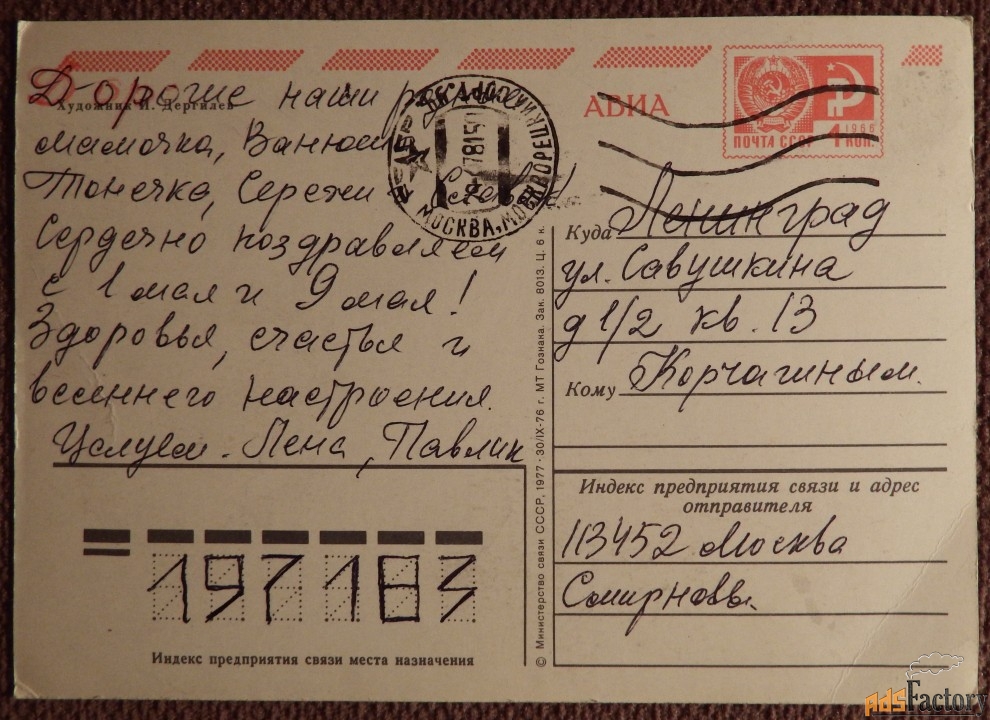 Художник И. Дергилев
Дорогие наши
мамочка, Ванюш
Тонечка, Сережи
Сердечно поздравляем
с 1 мая и 9 мая!
Здоровья, счастья и
весеннего настроения.
Целуем. Лена, Павлик
197183
Индекс предприятия связи места назначения
© Министерство связи СССР, 1977 · 30/IX-76 г. МТ Гознака. Зак. 8013. Ц. 6 к.
МОСКВА
АВИА
1966
ПОЧТА СССР 4 КОП.
Куда Ленинград
ул. Савушкина
д 1/2 кв. 13
Кому Корчагиным.
Индекс предприятия связи и адрес
отправителя
113452 Москва
Смирновы.
AdsFactory